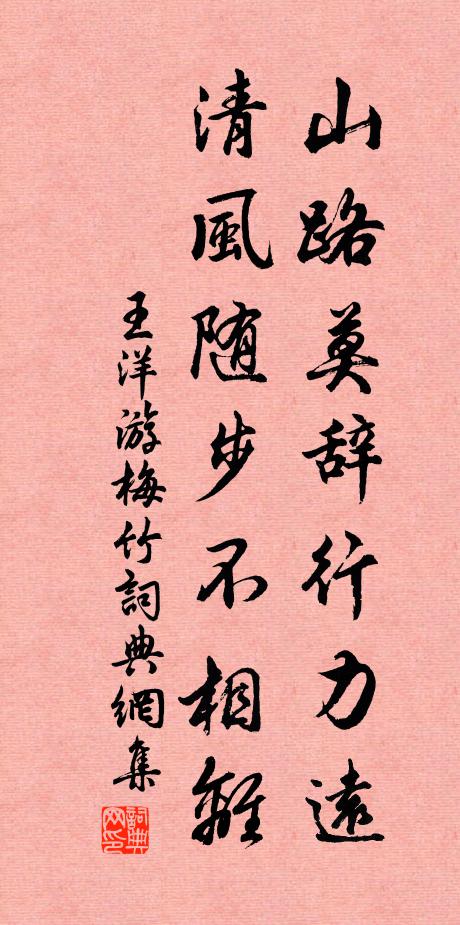 山路莫辞行力遠
清風随步不相離
王洋游梅竹詞典網集
詞典网印